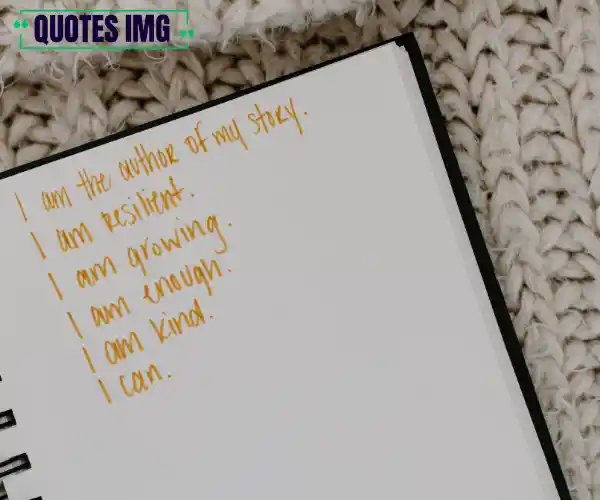 QUOTES IMG
I am the author of my story.
I am resilient.
I am growing.
I am enough.
I am kind.
I can.